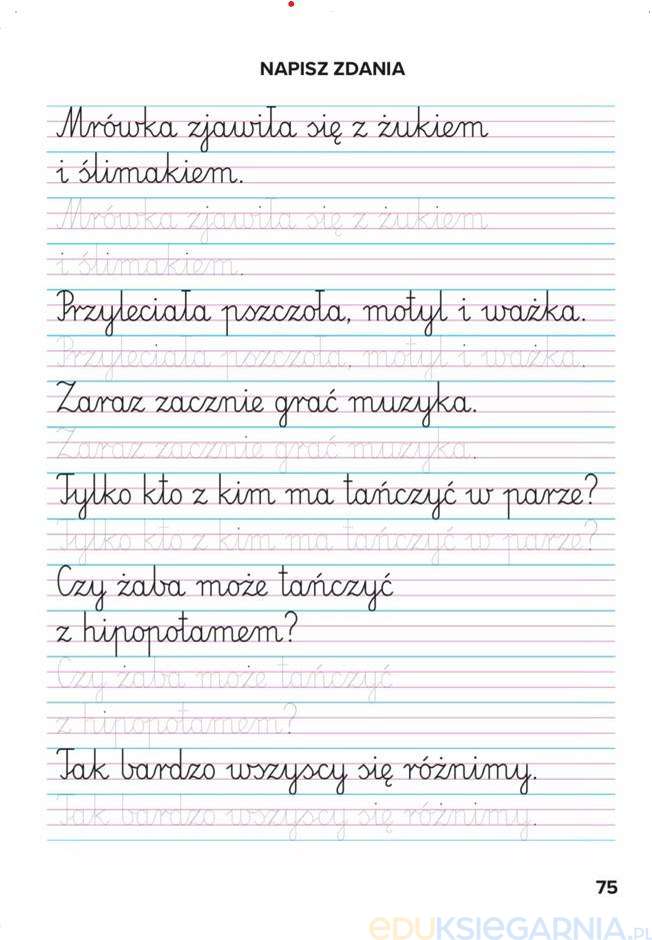 NAPISZ ZDANIA
Mrówka zjawiła się z żukiem
i ślimakiem.
Mrówka zjawiła się z żukiem
i ślimakiem.
Przyleciała pszczoła, motyl i ważka.
Przyleciała pszczoła, motyl i ważka.
Zaraz zacznie grać muzyka.
Zaraz zacznie grać muzyka.
Tylko kto z kim ma tańczyć w parze?
Tylko kto z kim ma tańczyć w parze?
Czy żaba może tańczyć
z hipopotamem?
Czy żaba może tańczyć
z hipopotamem?
Tak bardzo wszyscy się różnimy.
Tak bardzo wszyscy się różnimy.
75
eDUKSIęGARNIA.PL